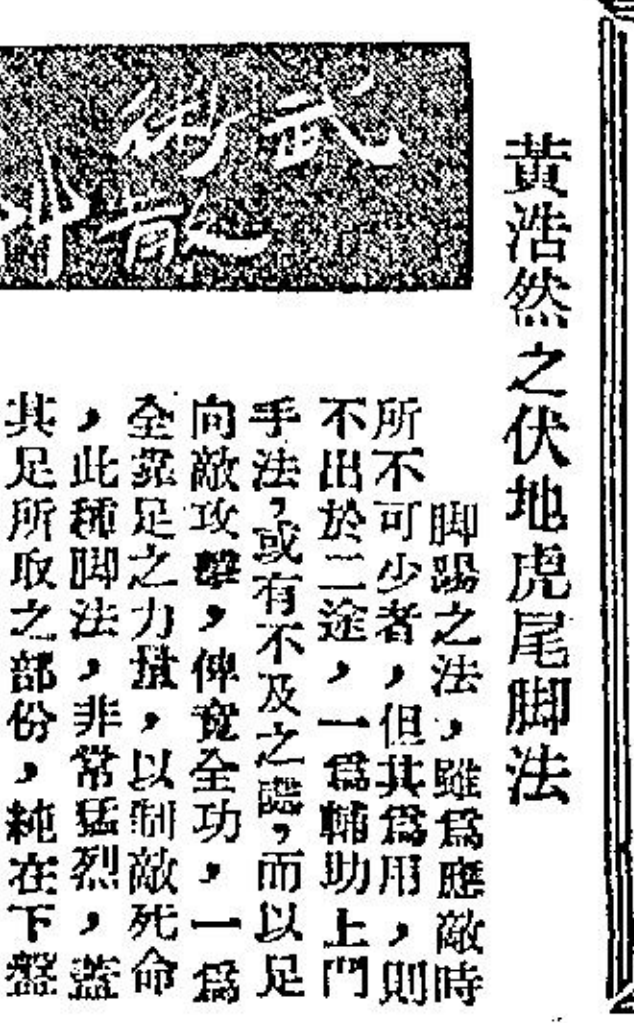 黃浩然之伏地虎尾脚法
武術
散
脚踢之法，雖爲應敵時
所不可少者，但其爲用，則
不出於二途，一爲輔助上門
手法，或有不及之處，而以足
向敵攻擊，俾竟全功，一爲
全靠足之力量，以制敵死命
，此種脚法，非常猛烈，蓋
其足所取之部份，純在下盤